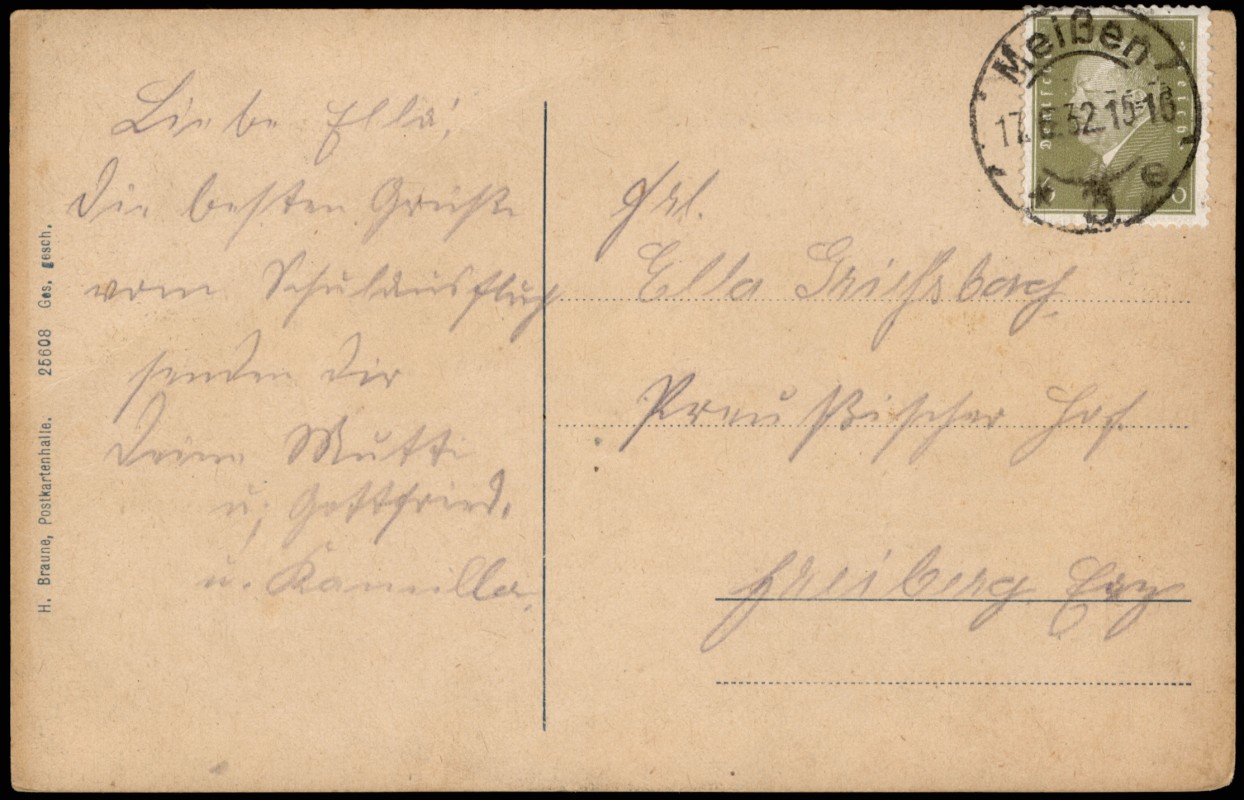 Liebe Ella!
Die besten Grüße
vom Schulausflug
senden Dir
Deine Mutti
u. Gottfried.
u. Kamilla.
Frl.
Ella
Preußischer Hof.
Freiberg Erz
H. Braune, Postkartenhalle. 25608 Ges. gesch.
Meißen
17.6.32.15-16
* 3 e
Deutsches Reich
6